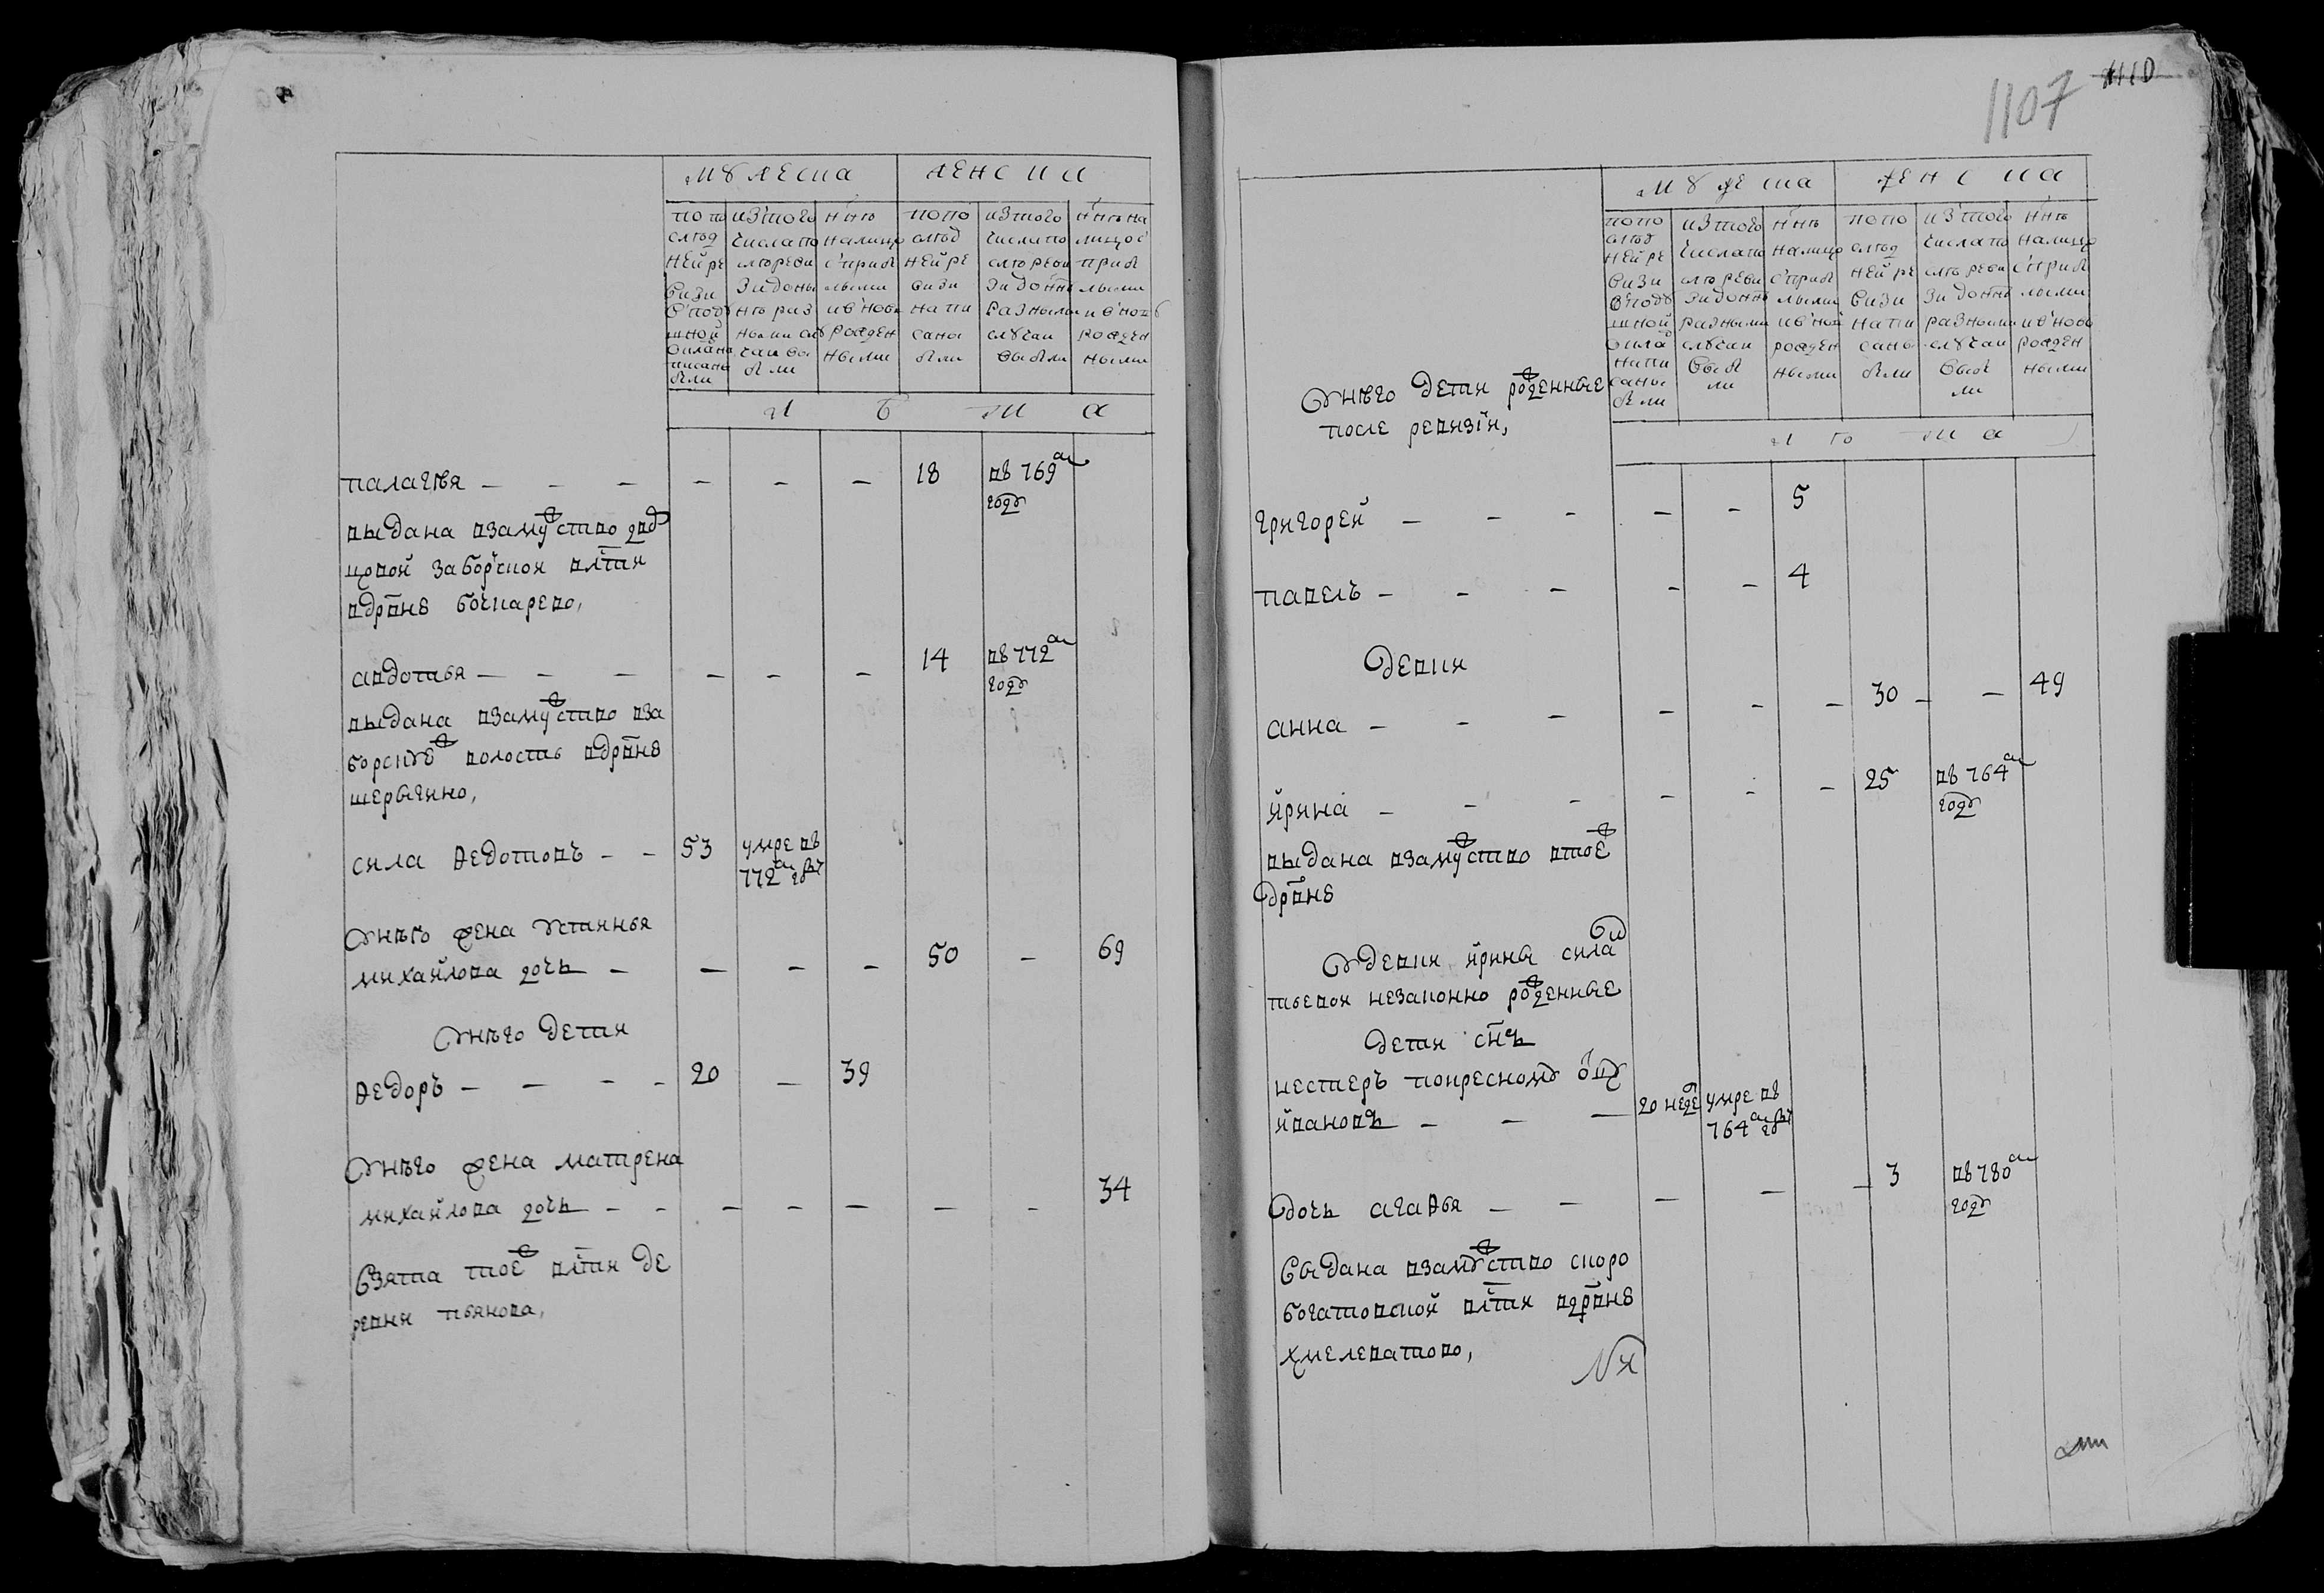 мужеска женски
по по следней ревизи в подушной оклад написаны были
из того числа по сле ревизи до ныне раз ными случаи выбыли
ныне на лицо с прибылыми и в новь рожденными
по по следней ревизи написаны были
из того числа по сле ревизи до ныне разными случаи выбыли
ныне на лицо с прибылыми и в новь рожденными
л ѣ т а
палагѣя — — — — — — 18 въ 769м
году
выдана взамужство двор
цовой заборской влсти
вдрвнѣ бочкарево,
авдотья — — — — — — 14 въ 772м
году
выдана взамужство вза
борскуюж волость вдрвнѣ
шерыгино,
сила ѳедотовъ — — 53 умре въ
772м году
унѣго жена устинья
михайлова дочь — — — — 50 — 69
унѣго дети
ѳедоръ — — — — 20 — 39
унѣго жена матрена
михайлова дочь — — — — — — — 34
взята тоеж влсти де
ревни пьянова,
1107
1110
мужеска женска
по по следней ревизи в подушной оклад написаны были
из того числа по сле ревизи до ныне разными случаи выбыли
ныне на лицо с прибылыми и в новь рожденными
по по следней ревизи написаны были
из того числа по сле ревизи до ныне разными случаи выбыли
ныне на лицо с прибылыми и в ново рожденными
л ѣ т а
унѣго дети рожденные
после ревизіи,
григорей — — — — — 5
павелъ — — — — — 4
девки
анна — — — — — — 30 — — 49
ирина — — — — — — 25 въ 764м
году
выдана взамужство втоеж
дрвнѣ
удевки ирины сила
тьевой незаконно рожденные
дети снъ
нестеръ покресному отцу
ивановъ — — — 20 неде умре въ
764м году
дочь агаѳья — — — — — 3 въ 780м
году
выдана взамужство скоро
богатовской влсти вдрвнѣ
хмелеватово,